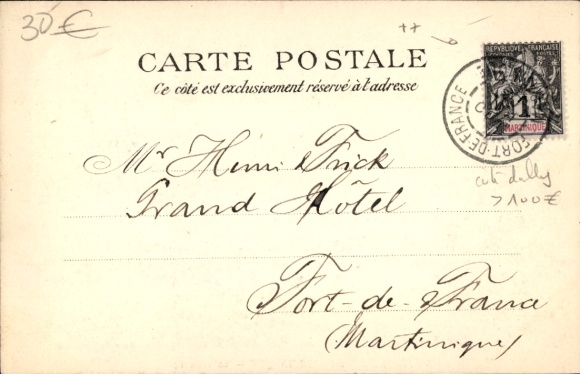 30 €
CARTE POSTALE
Ce côté est exclusivement réservé à l'adresse
REPUBLIQUE FRANÇAISE
1
MARTINIQUE
FORT-DE-FRANCE
> 100 €
Mr Henri Frick
Grand Hôtel
Fort-de-France
(Martinique)